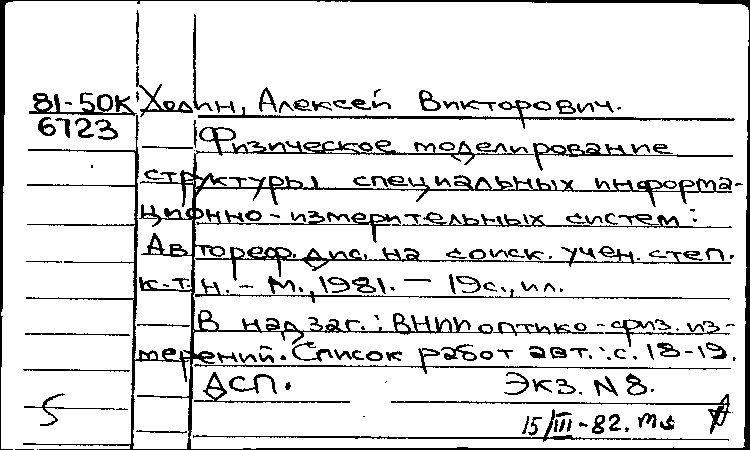 81-50К Ходин, Алексей Викторович.
6723
Физическое моделирование
структуры специальных информа-
ционно-измерительных систем:
Автореф. дис. на соиск. учен. степ.
к.т.н. - М., 1981. — 19с., ил.
В надзаг.: ВНИИ оптико-физ. из-
мерений. Список работ авт.: с. 18-19.
ДСП. Экз. N 8.
5
15/III-82.